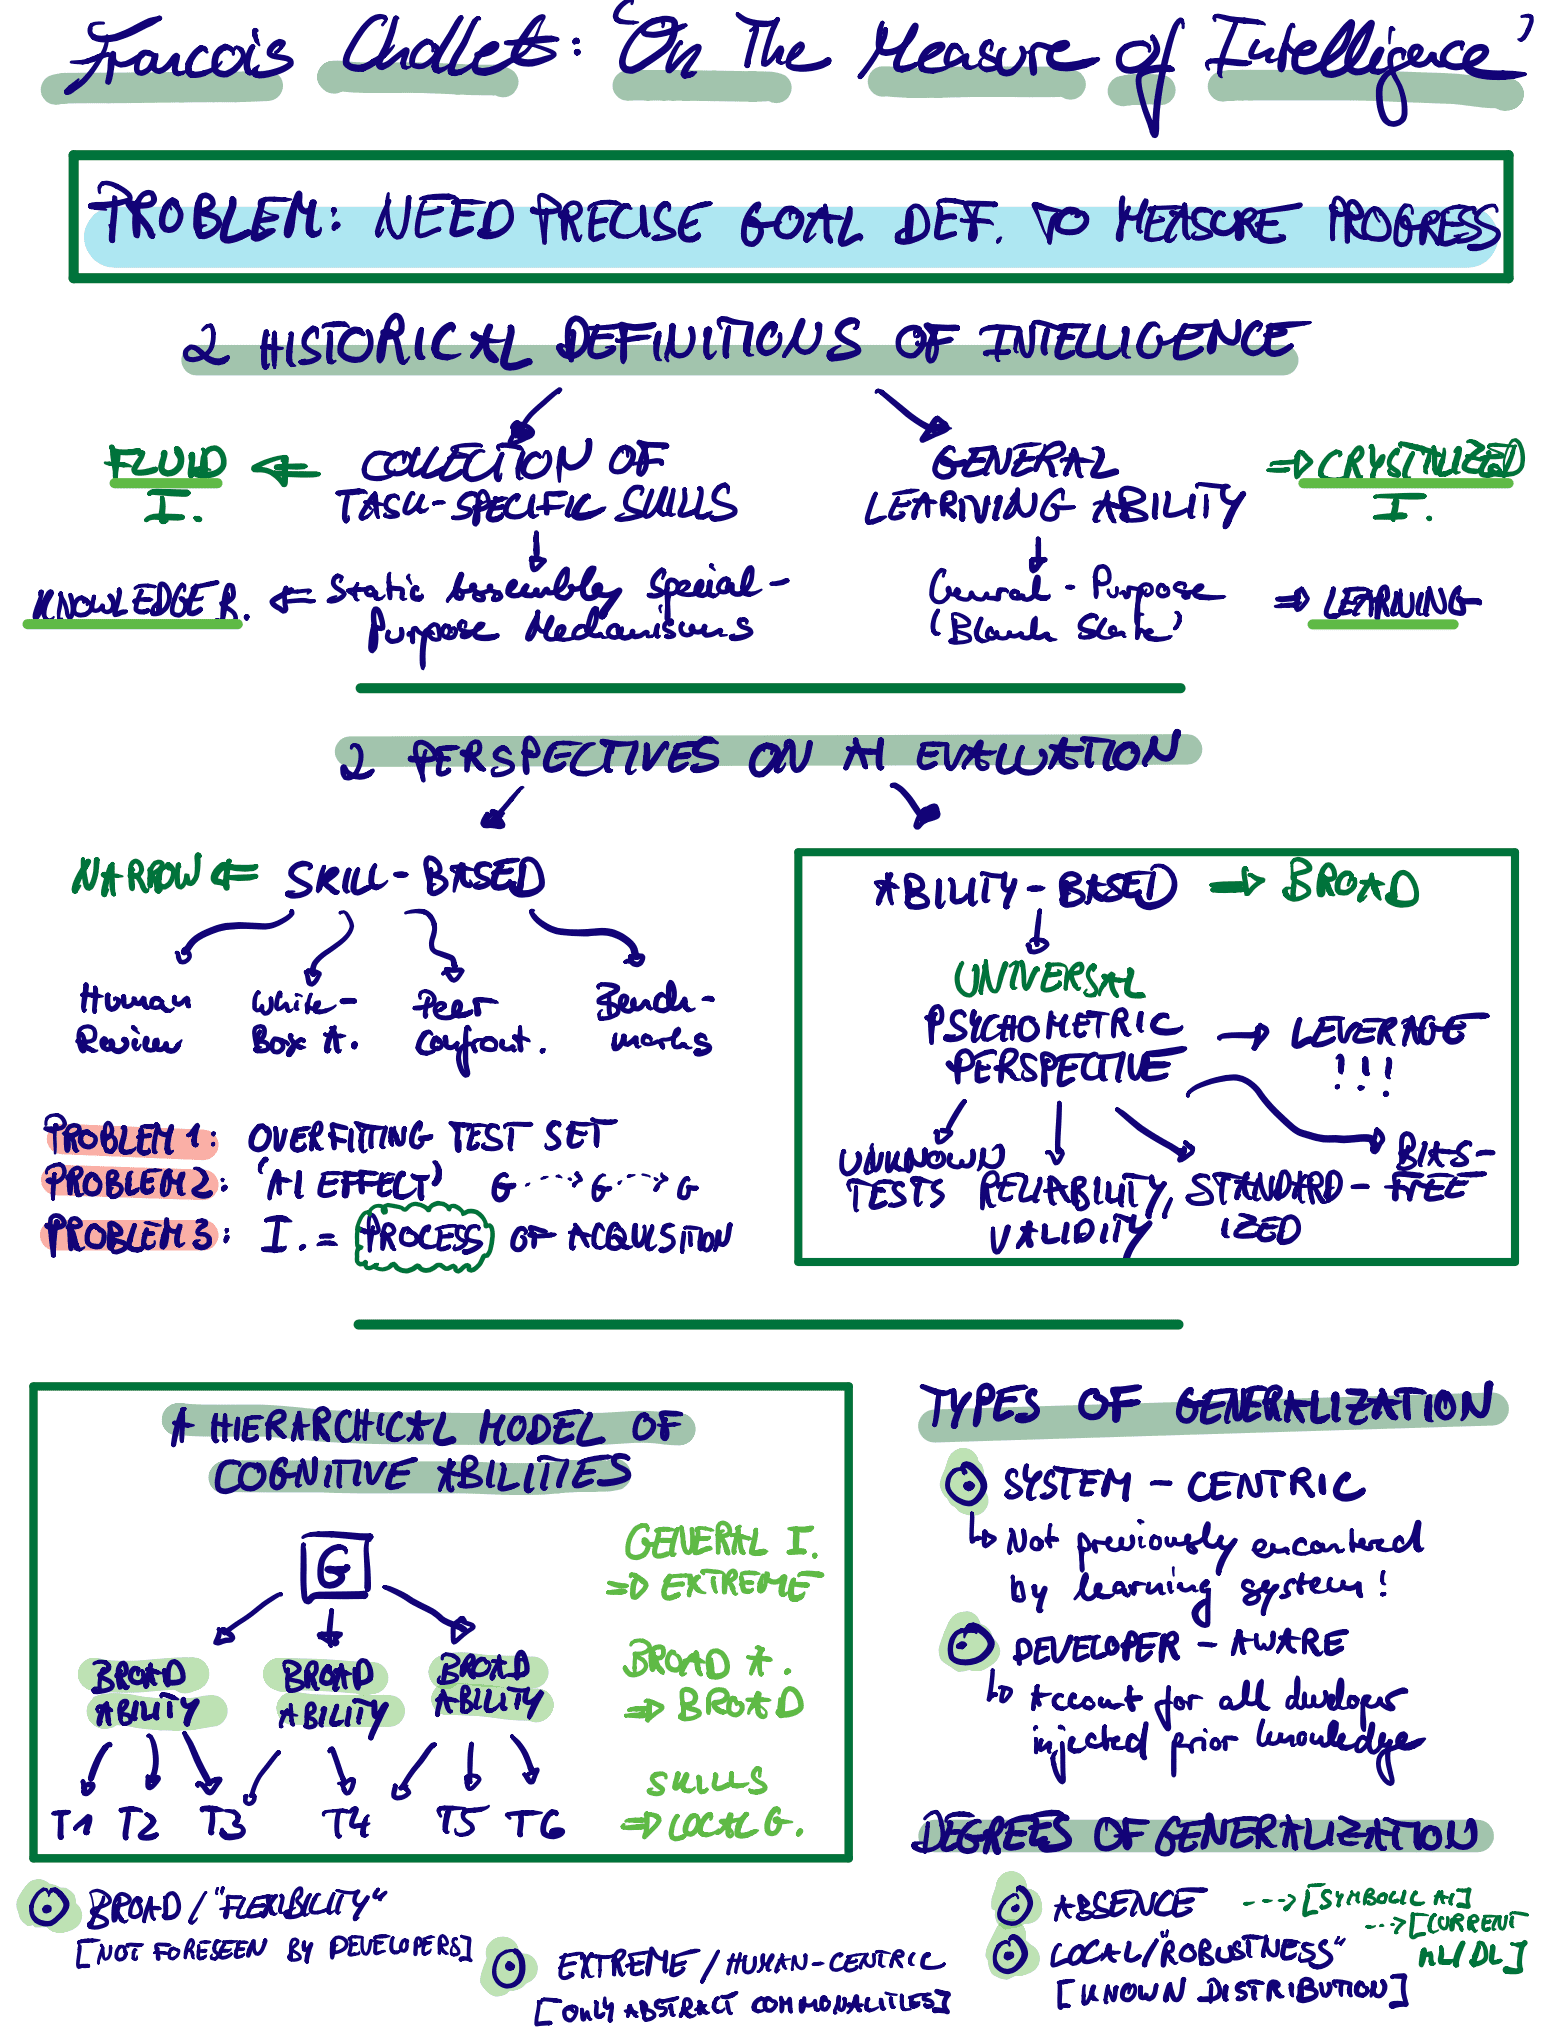 Francois Chollets: 'On The Measure of Intelligence'
PROBLEM: NEED PRECISE GOAL DEF. TO MEASURE PROGRESS
2 HISTORICAL DEFINITIONS OF INTELLIGENCE
FLUID I.
⇐ COLLECTION OF
TASK-SPECIFIC SKILLS
GENERAL
LEARNING ABILITY
⇒ CRYSTILIZED
I.
KNOWLEDGE R.
⇐ Static Assembly Special-
Purpose Mechanisms
General-Purpose
'Blank Slate'
⇒ LEARNING
2 PERSPECTIVES ON AI EVALUATION
NARROW ⇐ SKILL-BASED
Human
Review
White-
Box A.
Peer
Confront.
Bench-
marks
PROBLEM 1: OVERFITTING TEST SET
PROBLEM 2: 'AI EFFECT' G ----> G ----> G
PROBLEM 3: I. = PROCESS OF ACQUISITION
ABILITY-BASED ⇒ BROAD
UNIVERSAL
PSYCHOMETRIC
PERSPECTIVE
→ LEVERAGE
!!!
UNKNOWN
TESTS
RELIABILITY,
VALIDITY
STANDARD-
IZED
BIAS-
FREE
A HIERARCHICAL MODEL OF
COGNITIVE ABILITIES
G
GENERAL I.
⇒ EXTREME
BROAD
ABILITY
BROAD
ABILITY
BROAD
ABILITY
BROAD A.
⇒ BROAD
T1 T2 T3 T4 T5 T6
SKILLS
⇒ LOCAL G.
TYPES OF GENERALIZATION
SYSTEM-CENTRIC
Not previously encontered
by learning system!
DEVELOPER-AWARE
Account for all developer
injected prior knowledge
DEGREES OF GENERALIZATION
ABSENCE ---> [SYMBOLIC AI]
LOCAL/"ROBUSTNESS" ---> [CURRENT
ML/DL]
[KNOWN DISTRIBUTION]
BROAD/"FLEXIBILITY"
[NOT FORESEEN BY DEVELOPERS]
EXTREME/HUMAN-CENTRIC
[ONLY ABSTRACT COMMONALITIES]